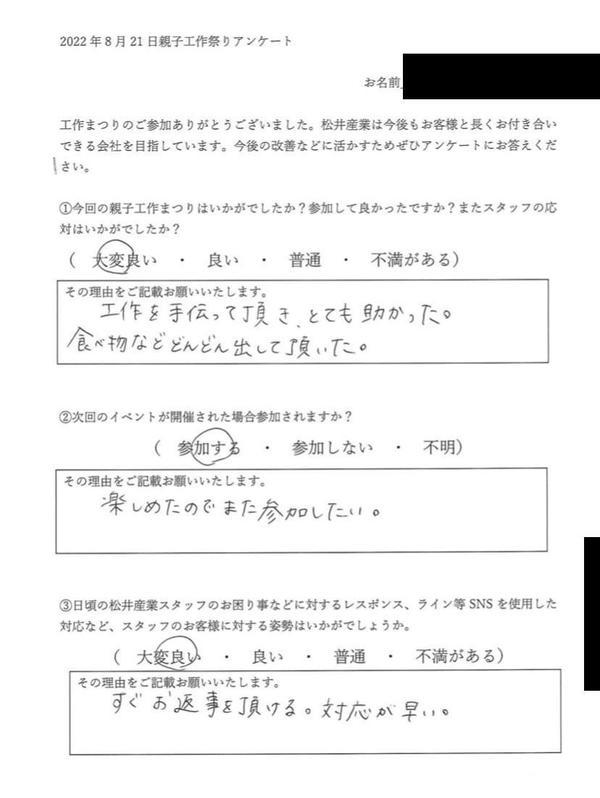 2022年8月21日親子工作祭りアンケート
お名前
工作まつりのご参加ありがとうございました。松井産業は今後もお客様と長くお付き合い
できる会社を目指しています。今後の改善などに活かすためぜひアンケートにお答えくだ
さい。
①今回の親子工作まつりはいかがでしたか？参加して良かったですか？またスタッフの応
対はいかがでしたか？
（ 大変良い ・ 良い ・ 普通 ・ 不満がある）
その理由をご記載お願いいたします。
工作を手伝って頂き、とても助かった。
食べ物などどんどん出して頂いた。
②次回のイベントが開催された場合参加されますか？
（ 参加する ・ 参加しない ・ 不明）
その理由をご記載お願いいたします。
楽しめたのでまた参加したい。
③日頃の松井産業スタッフのお困り事などに対するレスポンス、ライン等SNSを使用した
対応など、スタッフのお客様に対する姿勢はいかがでしょうか。
（ 大変良い ・ 良い ・ 普通 ・ 不満がある）
その理由をご記載お願いいたします。
すぐお返事を頂ける。対応が早い。